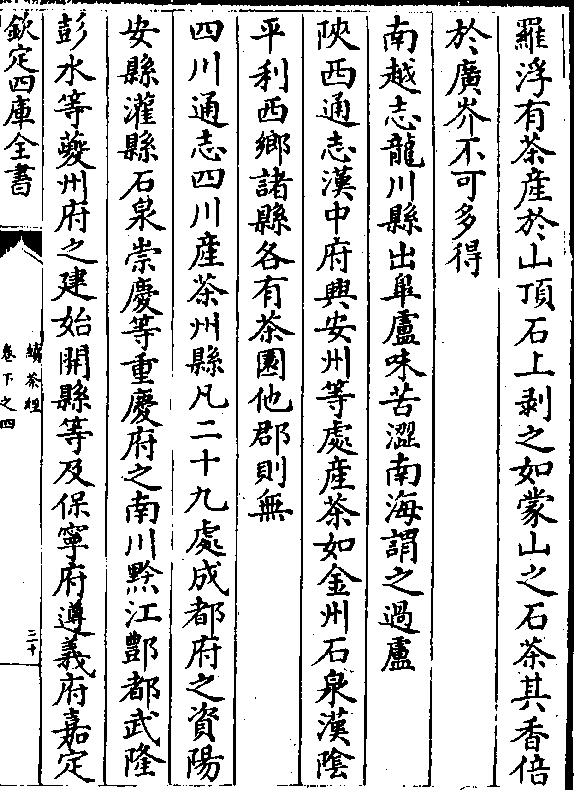 羅浮有茶産於山頂石上剥之如蒙山之石茶其香倍
於廣岕不可多得
南越志龍川縣出皐盧味苦澀南海謂之過盧
陜西通志漢中府興安州等處産茶如金州石泉漢陰
平利西鄉諸縣各有茶園他郡則無
四川通志四川産茶州縣凡二十九處成都府之資陽
安縣灌縣石泉崇慶等重慶府之南川黔江酆都武隆
彭水等夔州府之建始開縣等及保寧府遵義府嘉定
欽定四庫全書
續茶經
卷下之四
三十